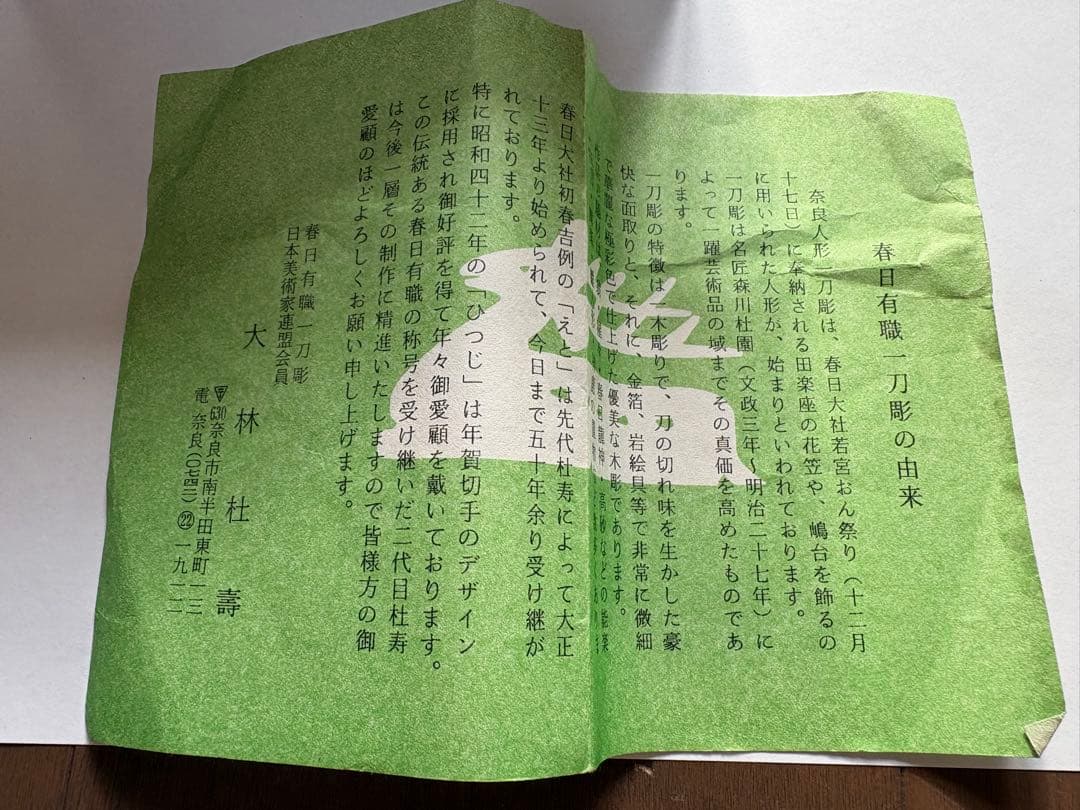 春日有職一刀彫の由来
奈良人形一刀彫は、春日大社若宮おん祭り(十二月
十七日)に奉納される田楽座の花笠や、嶋台を飾るの
に用いられた人形が、始まりといわれております。
一刀彫は名匠森川杜園(文政三年〜明治二十七年)に
よって一躍芸術品の域までその真価を高めたものであ
ります。
一刀彫の特徴は一木彫りで、刀の切れ味を生かした豪
快な面取りと、それに、金箔、岩絵具等で非常に微細
で華麗な極彩色で仕上げた優美な木彫であります。
高砂などの能楽
春日大社初春吉例の「えと」は先代杜寿によって大正
十三年より始められて、今日まで五十年余り受け継が
れております。
特に昭和四十二年の「ひつじ」は年賀切手のデザイン
に採用され御好評を得て年々御愛顧を戴いております。
この伝統ある春日有職の称号を受け継いだ二代目杜寿
は今後一層その制作に精進いたしますので皆様方の御
愛顧のほどよろしくお願い申し上げます。
春日有職一刀彫
日本美術家連盟会員
大林杜壽
〒630奈良市南半田東町一三
電 奈良(〇七四二)㉒一九一二